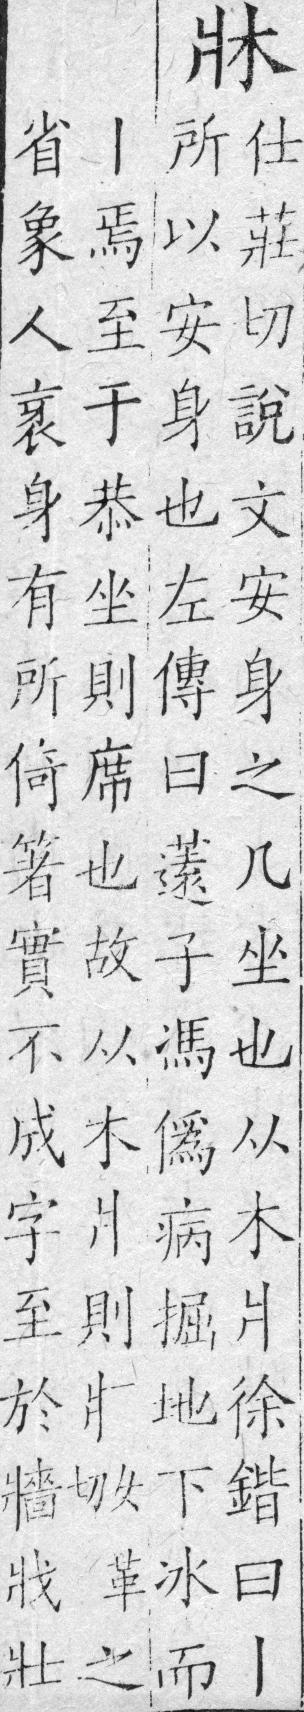 牀
仕莊切說文安身之几坐也从木爿徐鍇曰丨
所以安身也左傳曰薳子馮僞病掘地下冰而
丨焉至于恭坐則席也故从木爿則疒女革切之
省象人衺身有所倚箸實不成字至於牆戕壯